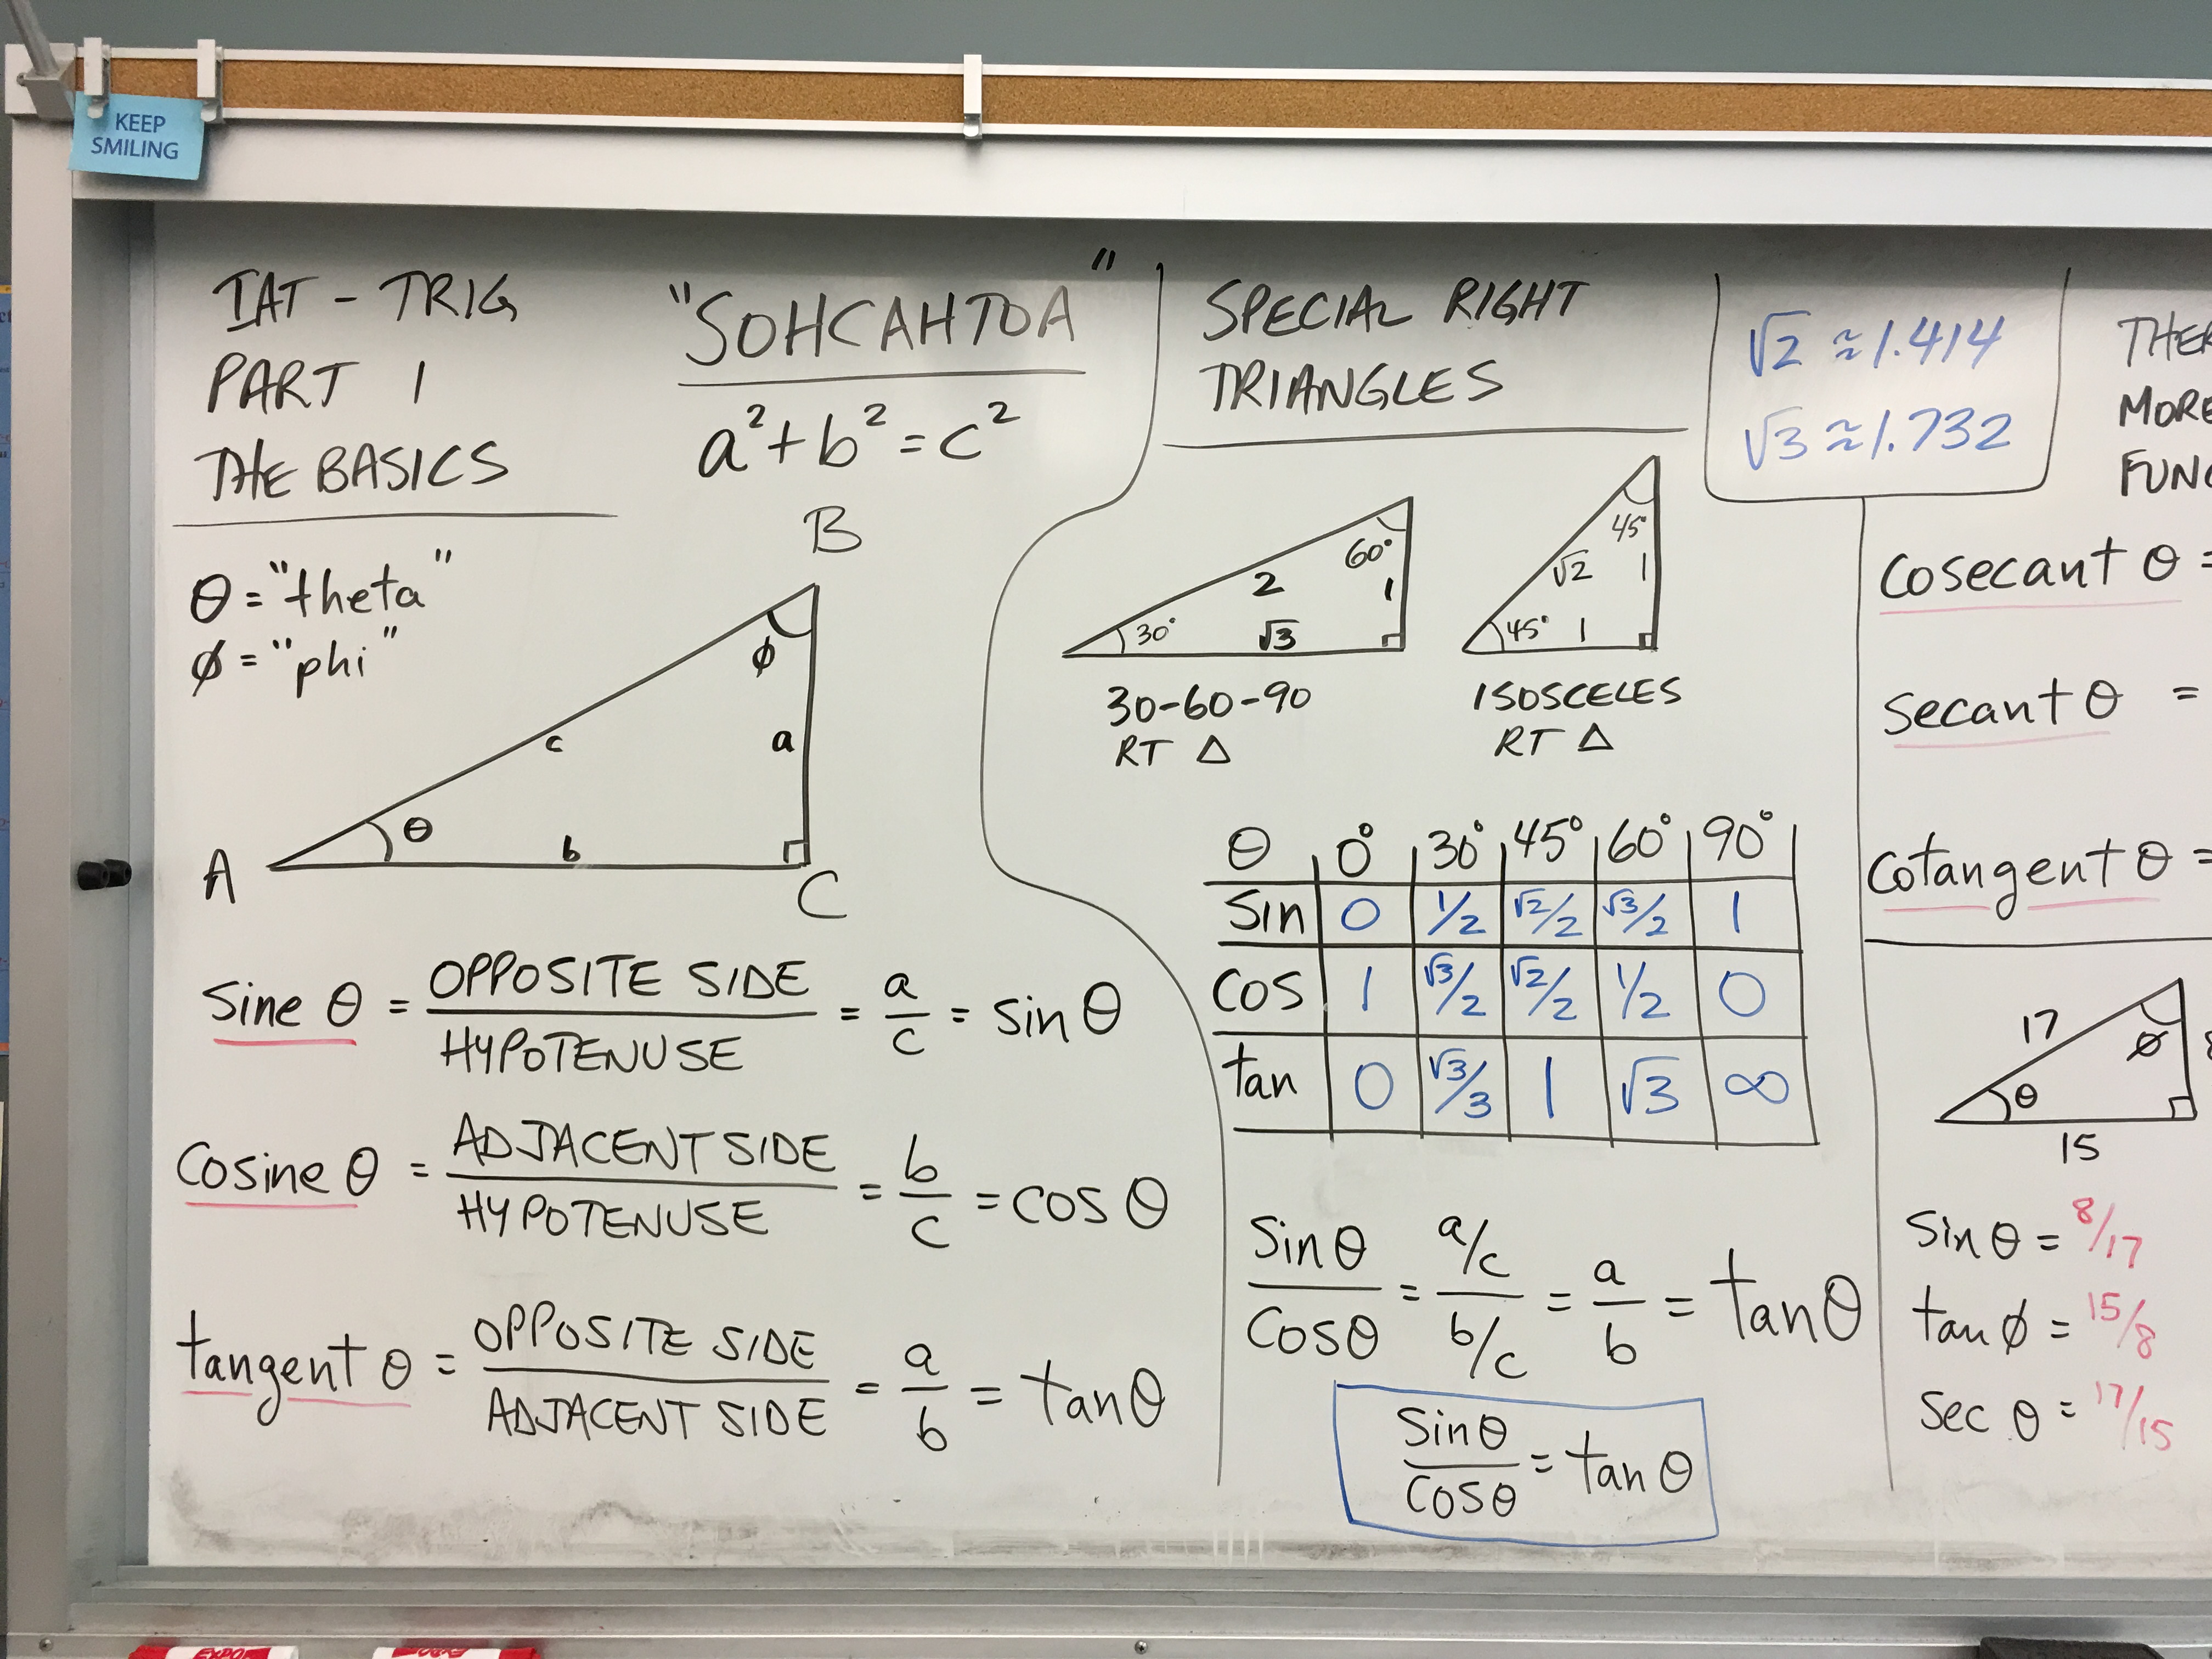 KEEP
SMILING
IAT - TRIG
PART 1
THE BASICS
"SOHCAHTOA"
a²+b²=c²
θ = "theta"
ϕ = "phi"
B
ϕ
c
a
θ
b
A
C
Sine θ = OPPOSITE SIDE / HYPOTENUSE = a/c = sin θ
Cosine θ = ADJACENT SIDE / HYPOTENUSE = b/c = cos θ
tangent θ = OPPOSITE SIDE / ADJACENT SIDE = a/b = tan θ
SPECIAL RIGHT
TRIANGLES
60°
2
1
30°
√3
30-60-90
RT △
45°
√2
1
45°
1
ISOSCELES
RT △
√2 ≈ 1.414
√3 ≈ 1.732
θ 0° 30° 45° 60° 90°
Sin 0 1/2 √2/2 √3/2 1
COS 1 √3/2 √2/2 1/2 0
tan 0 √3/3 1 √3 ∞
Sin θ / Cos θ = a/c / b/c = a/b = tan θ
Sin θ / Cos θ = tan θ
THER
MORE
FUNC
Cosecant θ =
Secant θ =
Cotangent θ =
17
ϕ
8
θ
15
Sin θ = 8/17
tan ϕ = 15/8
Sec θ = 17/15
EXPO